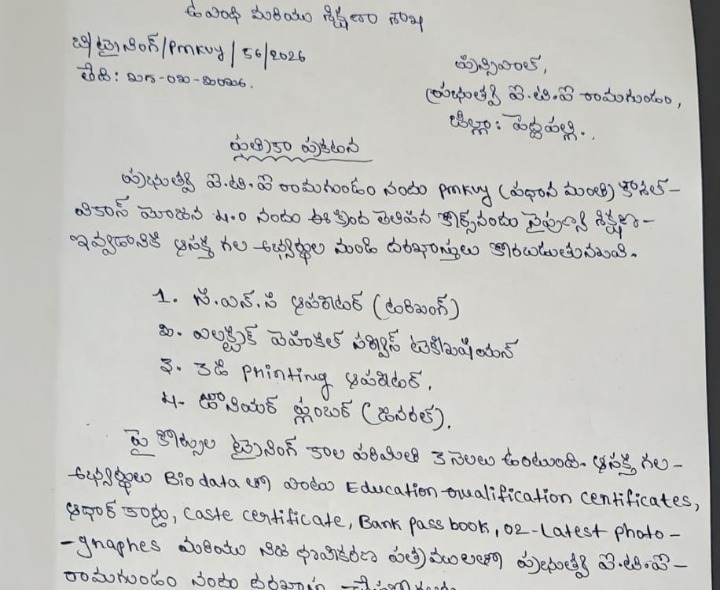 ఉపాధి మరియు శిక్షణా శాఖ
బి/ట్రైనింగ్/pmkvy/56/2026
తేది:
ప్రిన్సిపాల్,
ప్రభుత్వ ఐ.టి.ఐ రామగుండం,
జిల్లా: పెద్దపల్లి.
పత్రికా ప్రకటన
ప్రభుత్వ ఐ.టి.ఐ రామగుండం నందు pmkvy (ప్రధాన మంత్రి) కౌశల్-
వికాస్ యోజన 4.0 నందు ఈ క్రింద తెలిపిన కోర్స్‌నందు నైపుణ్య శిక్షణ-
ఇవ్వడానికి ఆసక్తి గల అభ్యర్థుల నుండి దరఖాస్తులు కోరబడుతున్నవి.
1. సి.ఎన్.సి ఆపరేటర్ (టర్నింగ్)
2. ఎలక్ట్రిక్ వెహికిల్ సర్వీస్ టెక్నీషియన్
3. 3డి printing ఆపరేటర్.
4. జూనియర్ ప్లంబర్ (జనరల్).
పై కోర్సుల ట్రైనింగ్ కాల పరిమితి 3 నెలలు ఉంటుంది. ఆసక్తి గల-
అభ్యర్థులు Bio data తో పాటు Education Qualification Certificates,
ఆధార్ కార్డు, Caste certificate, Bank Pass book, 02-Latest Photo-
-graphes మరియు నిజ ధ్రువీకరణ పత్రములతో ప్రభుత్వ ఐ.టి.ఐ-
రామగుండం నందు దరఖాస్తు